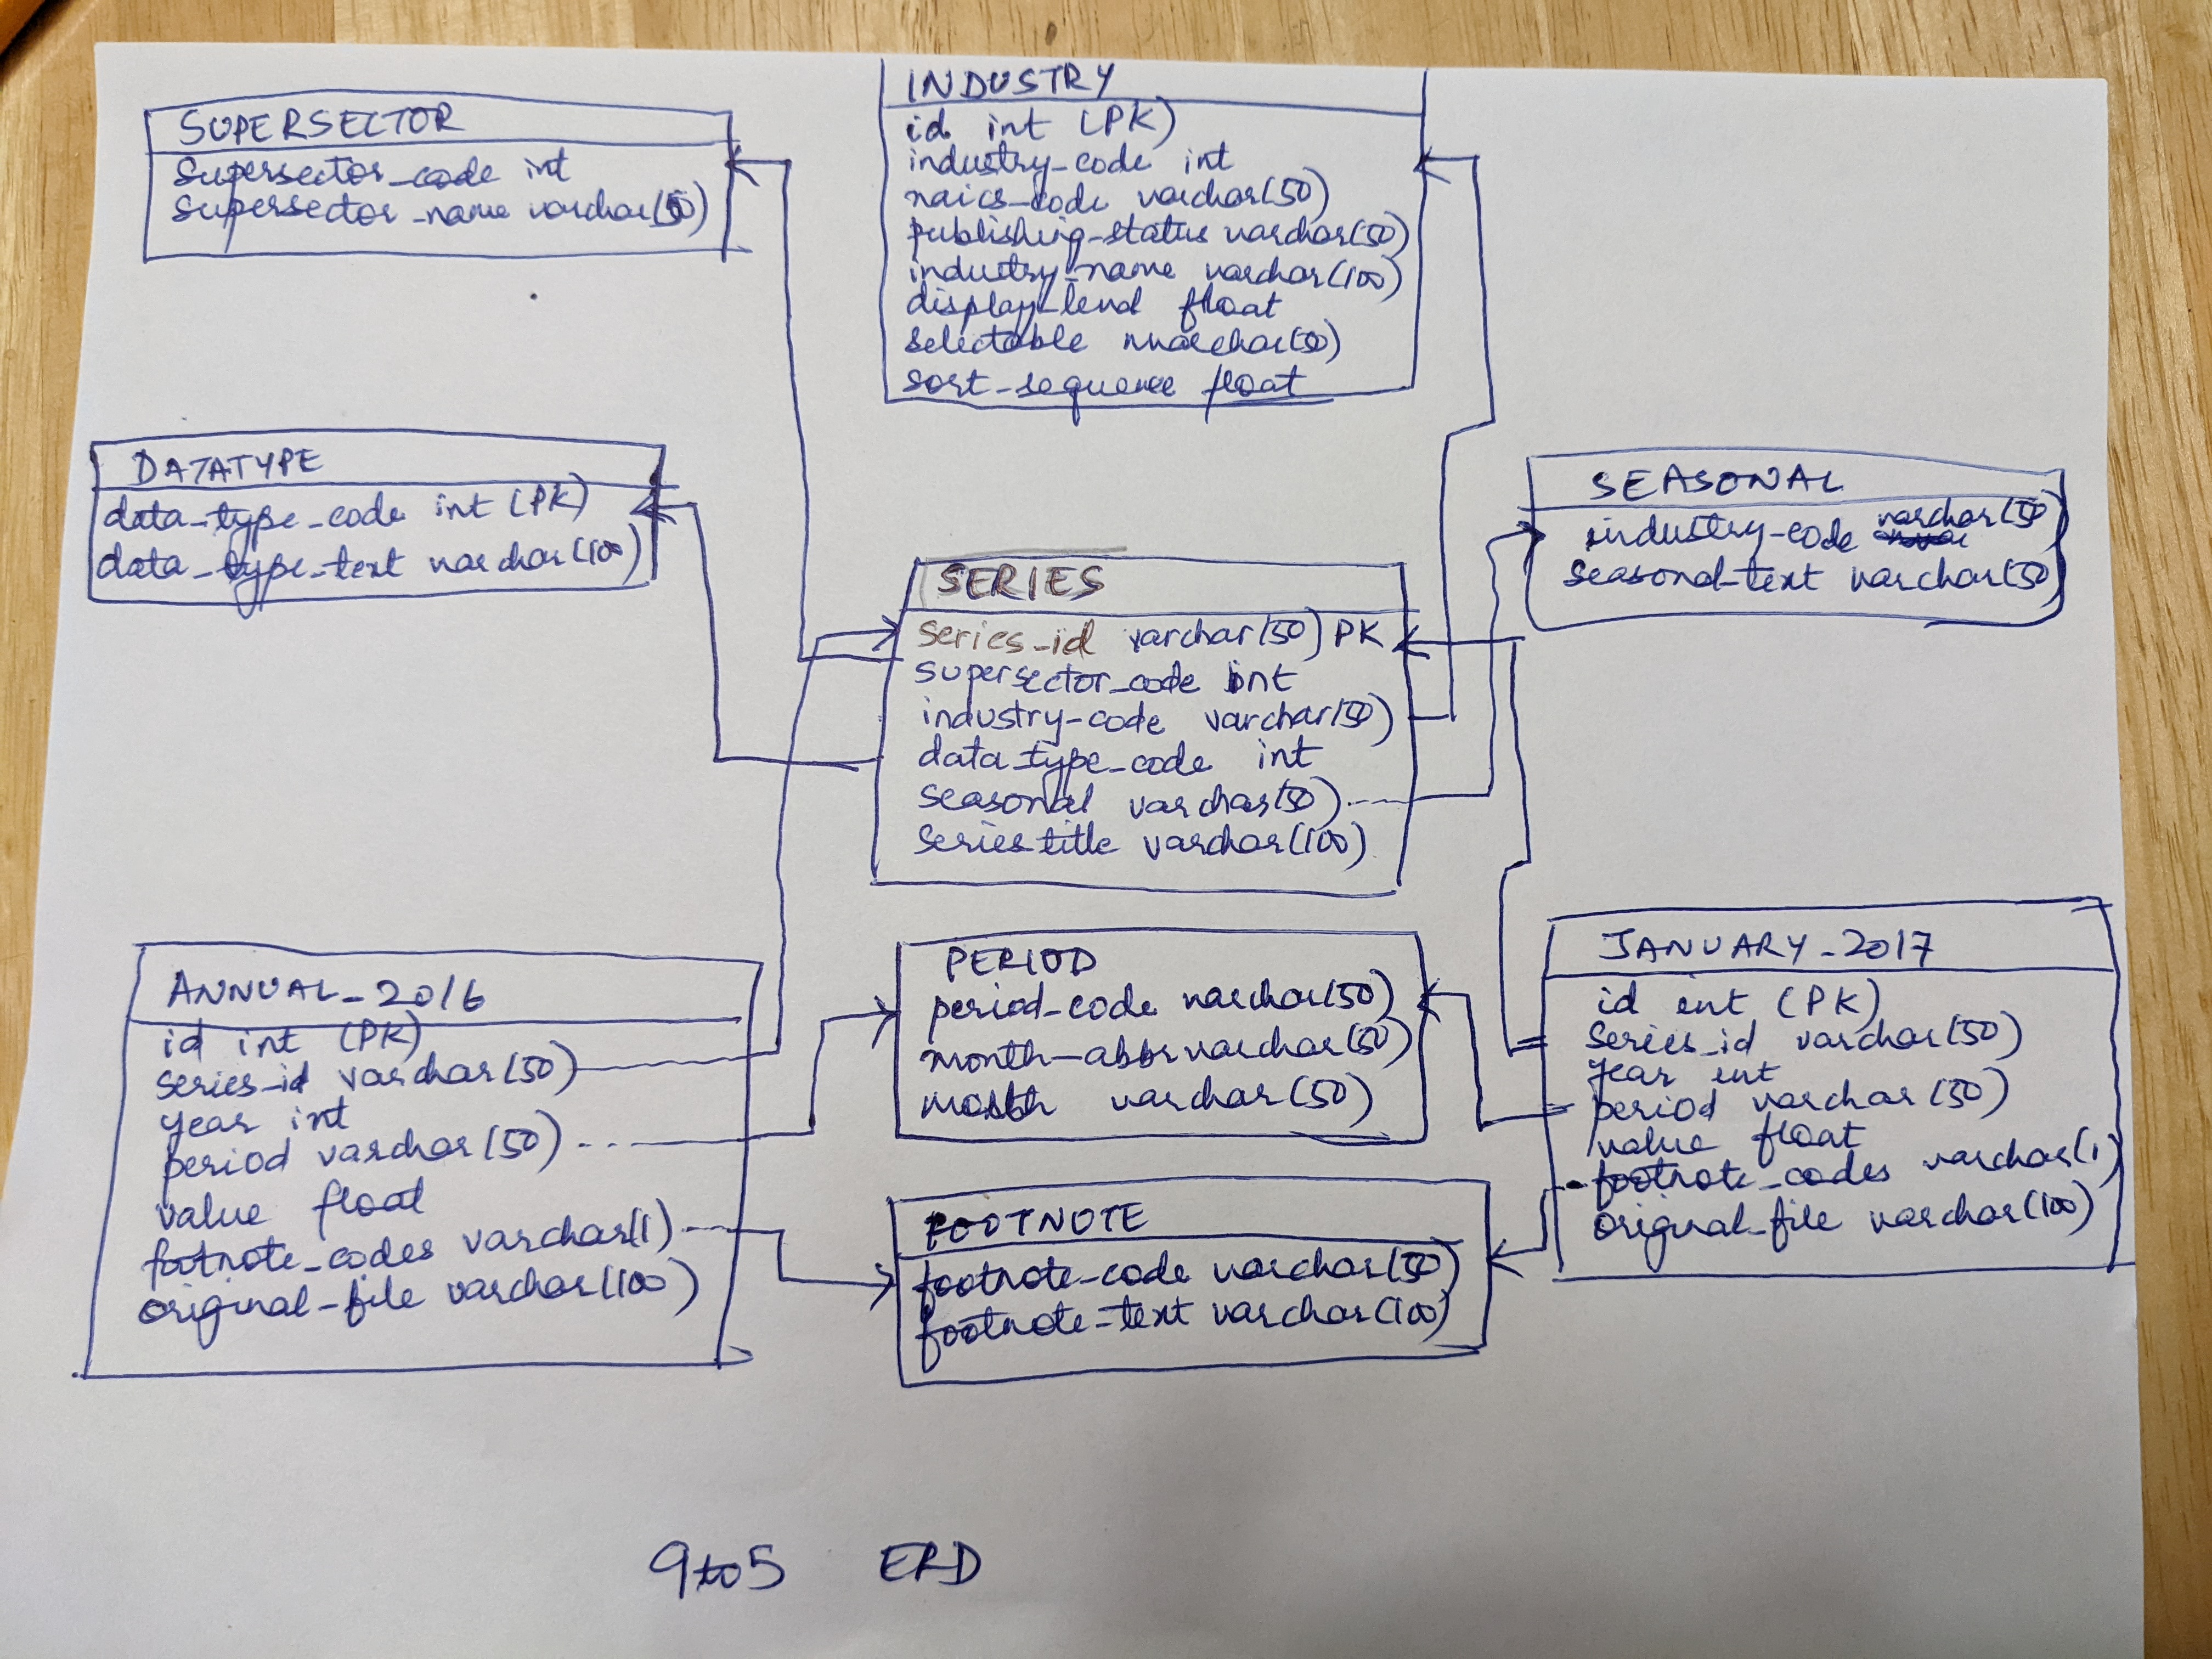 SUPERSECTOR
supersector_code int
supersector_name varchar(50)
INDUSTRY
id int (PK)
industry_code int
naics_code varchar(50)
publishing_status varchar(50)
industry_name varchar(100)
display_level float
selectable nvarchar(50)
sort_sequence float
DATATYPE
data_type_code int (PK)
data_type_text varchar(100)
SEASONAL
industry_code varchar(50)
seasonal_text varchar(50)
SERIES
series_id varchar(50) PK
supersector_code int
industry_code varchar(50)
data_type_code int
seasonal varchar(50)
series title varchar(100)
ANNUAL_2016
id int (PK)
series_id varchar(50)
year int
period varchar(50)
value float
footnote_codes varchar(1)
original_file varchar(100)
PERIOD
period_code varchar(50)
month_abbr varchar(50)
month varchar(50)
JANUARY_2017
id int (PK)
series_id varchar(50)
year int
period varchar(50)
value float
footnote_codes varchar(1)
original_file varchar(100)
FOOTNOTE
footnote_code varchar(50)
footnote_text varchar(100)
9to5 ERD